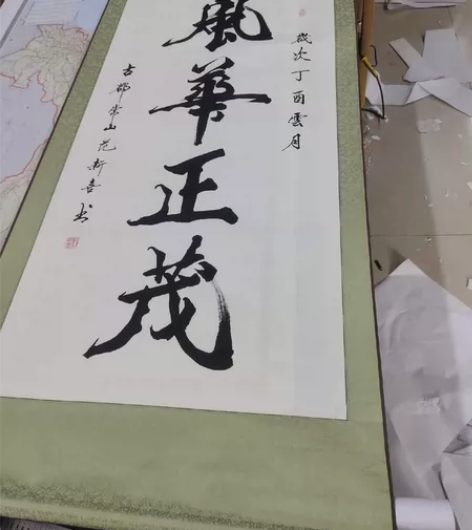 幾次丁酉雲月
風華正茂
古郡常山范新喜书